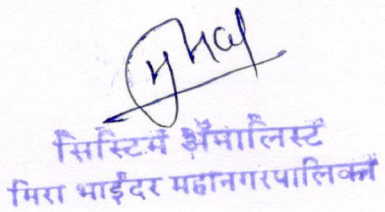 सिस्टिम ॲनालिस्ट
मिरा भाईंदर महानगरपालिका